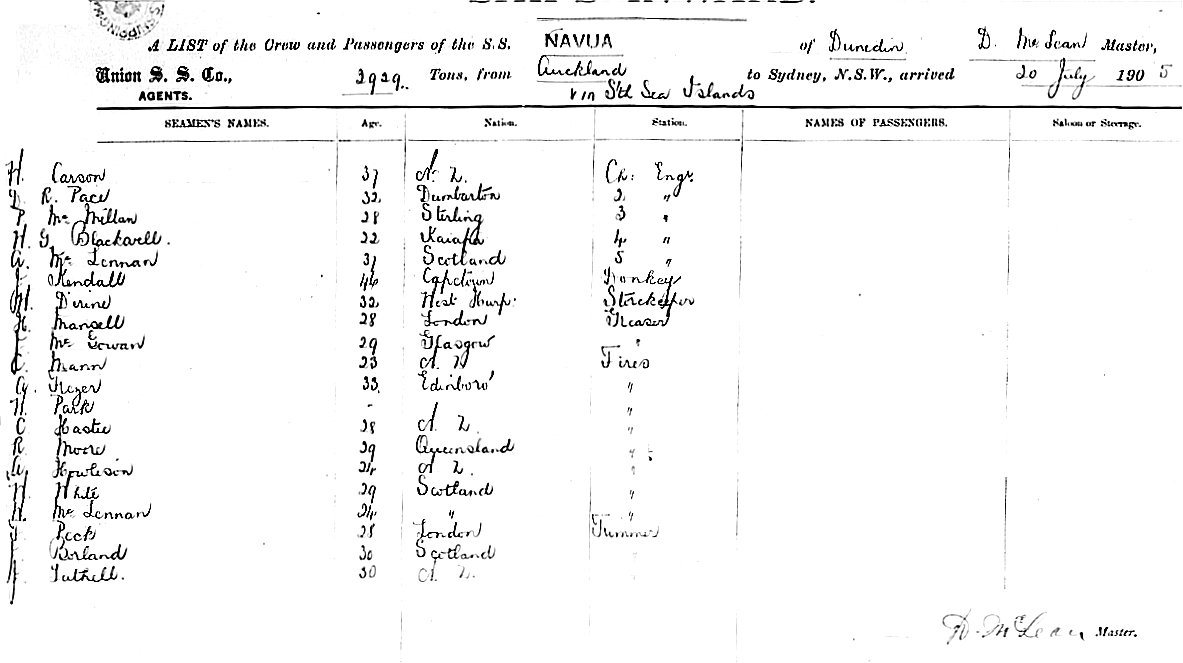 A LIST of the Crew and Passengers of the S.S. NAVUA of Dunedin, D. McLean Master,
Union S. S. Co., AGENTS. 2929. Tons, from Auckland to Sydney, N.S.W., arrived 20 July 1905
via Sth Sea Islands
SEAMEN'S NAMES. Age. Nation. Station. NAMES OF PASSENGERS. Saloon or Steerage.
H. Carson 37 N. Z. Ch: Engr.
D. R. Pace 32 Dumbarton 2 "
P. McMillan 28 Sterling 3 "
H. G. Blackwell. 22 Kaiapa 4 "
A. McLennan 31 Scotland 5 "
J. Kendall 46 Capetown Donkey
32 Storekeeper
H. Mansell 28 London Greaser
McGowan 29 Glasgow "
C. Mann 23 N. Z Fires
G. 33 Edinboro' "
H. Park - "
C Hastie 28 N. Z. "
R. Moore 29 Queensland "
24 N Z. "
H. White 29 Scotland "
H. McLennan 24 " "
Peck 28 London Trimmer
Borland 30 Scotland "
J. Tuthell. 30 N. Z. "
D. McLean Master.